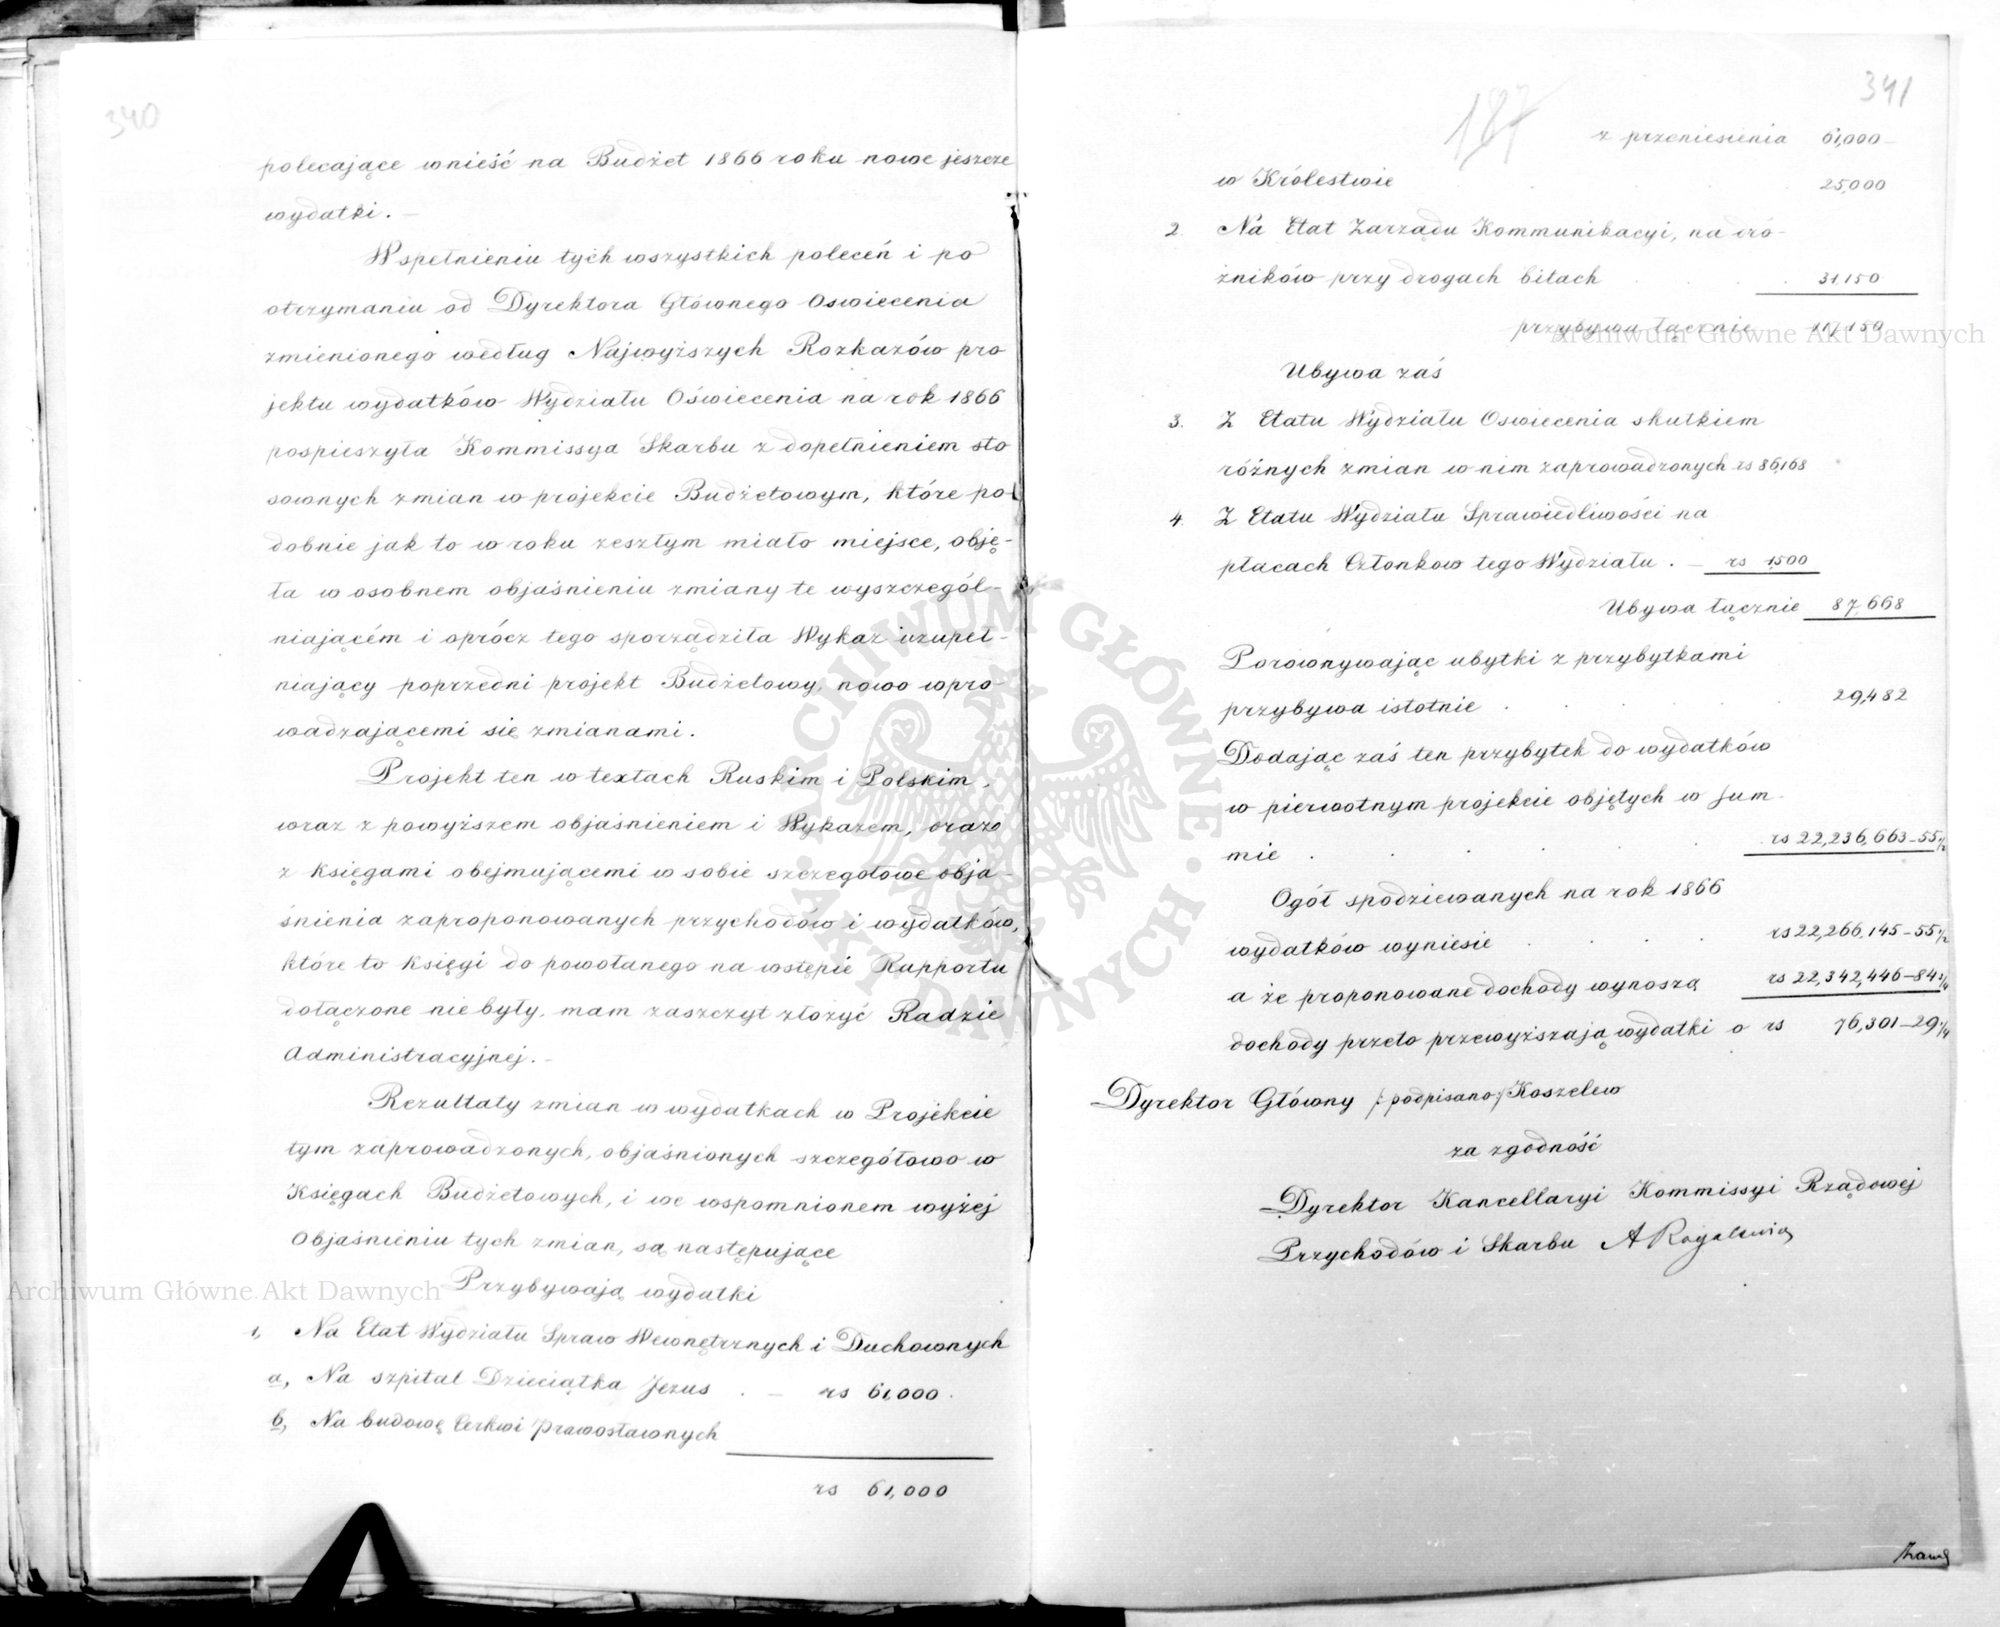 340
polecające wnieść na Budżet 1866 roku nowe jeszcze
wydatki. –
W spełnieniu tych wszystkich poleceń i po
otrzymaniu od Dyrektora Głównego Oswiecenia
zmienionego według Najwyższych Rozkazów pro
jektu wydatków Wydziału Oświecenia na rok 1866
pospieszyła Kommissya Skarbu z dopełnieniem sto
sownych zmian w projekcie Budżetowym, które po-
dobnie jak to w roku zeszłym miało miejsce, obję-
ła w osobnem objaśnieniu zmiany te wyszczegól-
niającém i oprócz tego sporządziła Wykaz uzupeł-
niający poprzedni projekt Budżetowy, nowo wpro
wadzającemi się zmianami.
Projekt ten w textach Ruskim i Polskim,
wraz z powyższem objaśnieniem i Wykazem, oraz
z księgami obejmującemi w sobie szczegółowe obja-
śnienia zaproponowanych przychodów i wydatków,
które to księgi do powołanego na wstępie Rapportu
dołączone nie były, mam zaszczyt złożyć Radzie
Administracyjnej. –
Rezultaty zmian w wydatkach w Projekcie
tym zaprowadzonych, objaśnionych szczegółowo w
Księgach Budżetowych, i we wspomnionem wyżej
Objaśnieniu tych zmian, są następujące
Przybywają wydatki
1, Na Etat Wydziału Spraw Wewnętrznych i Duchownych
a, Na szpital Dzieciątka Jezus . – rs 61,000.
b, Na budowę Cerkwi Prawosławnych
rs 61,000
341
187
z przeniesienia 61,000 –
w Królestwie 25,000
2. Na Etat Zarządu Kommunikacyi, na dró-
żników przy drogach bitach 31,150
przybywa łącznie 117,150
Ubywa zaś
3. Z Etatu Wydziału Oswiecenia skutkiem
różnych zmian w nim zaprowadzonych rs 86,168
4. Z Etatu Wydziału Sprawiedliwości na
płacach Członkow tego Wydziału . – rs 1,500
Ubywa łącznie 87,668
Porównywając ubytki z przybytkami
przybywa istotnie . 29,482
Dodając zaś ten przybytek do wydatków
w pierwotnym projekcie objętych w sum-
mie . rs 22,236,663–55 1/2
Ogół spodziewanych na rok 1866
wydatków wyniesie rs 22,266,145–55 1/2
a że proponowane dochody wynoszą rs 22,342,446–84 3/4
dochody przeto przewyższają wydatki o rs 76,301–29 1/4
Dyrektor Główny /:podpisano:/ Koszelew
za zgodność
Dyrektor Kancellaryi Kommissyi Rządowej
Przychodów i Skarbu A Rogalewicz
Archiwum Główne Akt Dawnych
Archiwum Główne Akt Dawnych
ARCHIWUM GŁÓWNE AKT DAWNYCH